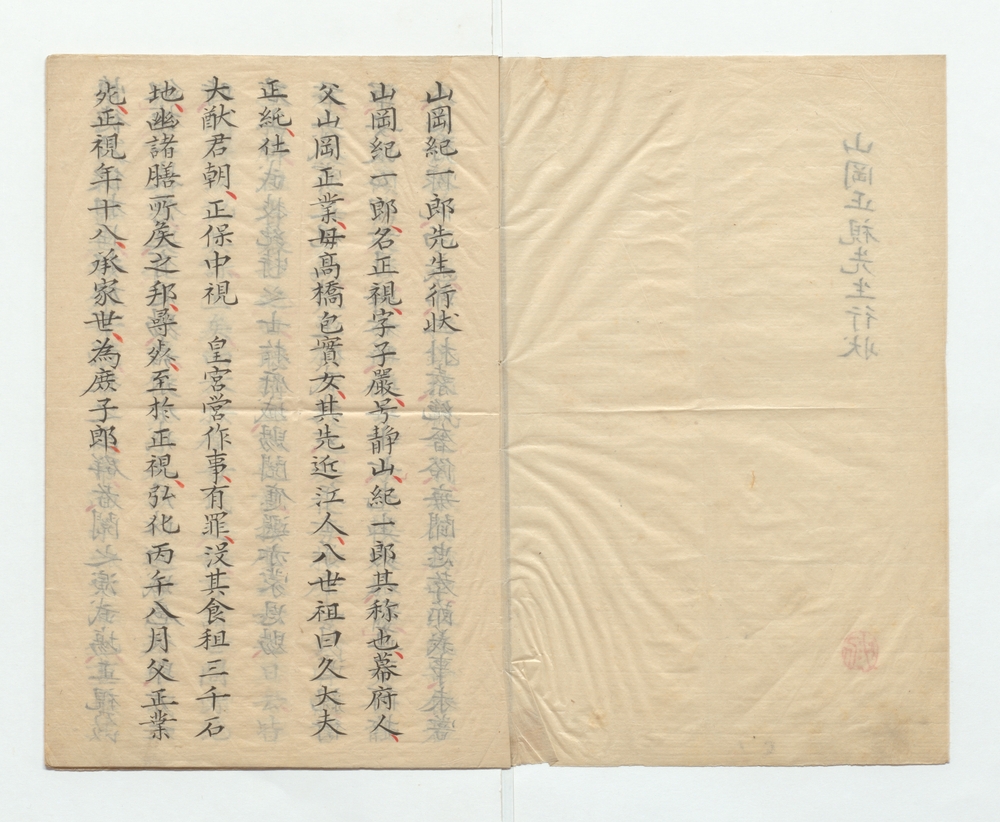 山岡正視先生行状
山岡紀一郎先生行状
山岡紀一郎、名正視、字子嚴、号静山、紀一郎其称也、幕府人、
父山岡正業、母高橋包實女、其先近江人、八世祖曰久大夫
正純、仕
大猷君朝、正保中視 皇宮営作事、有罪、没其食租三千石
地、幽諸膳所矣之邦、尋死、至於正視、弘化丙午八月父正業
死、正視年十八、承家世、為庶子郎、